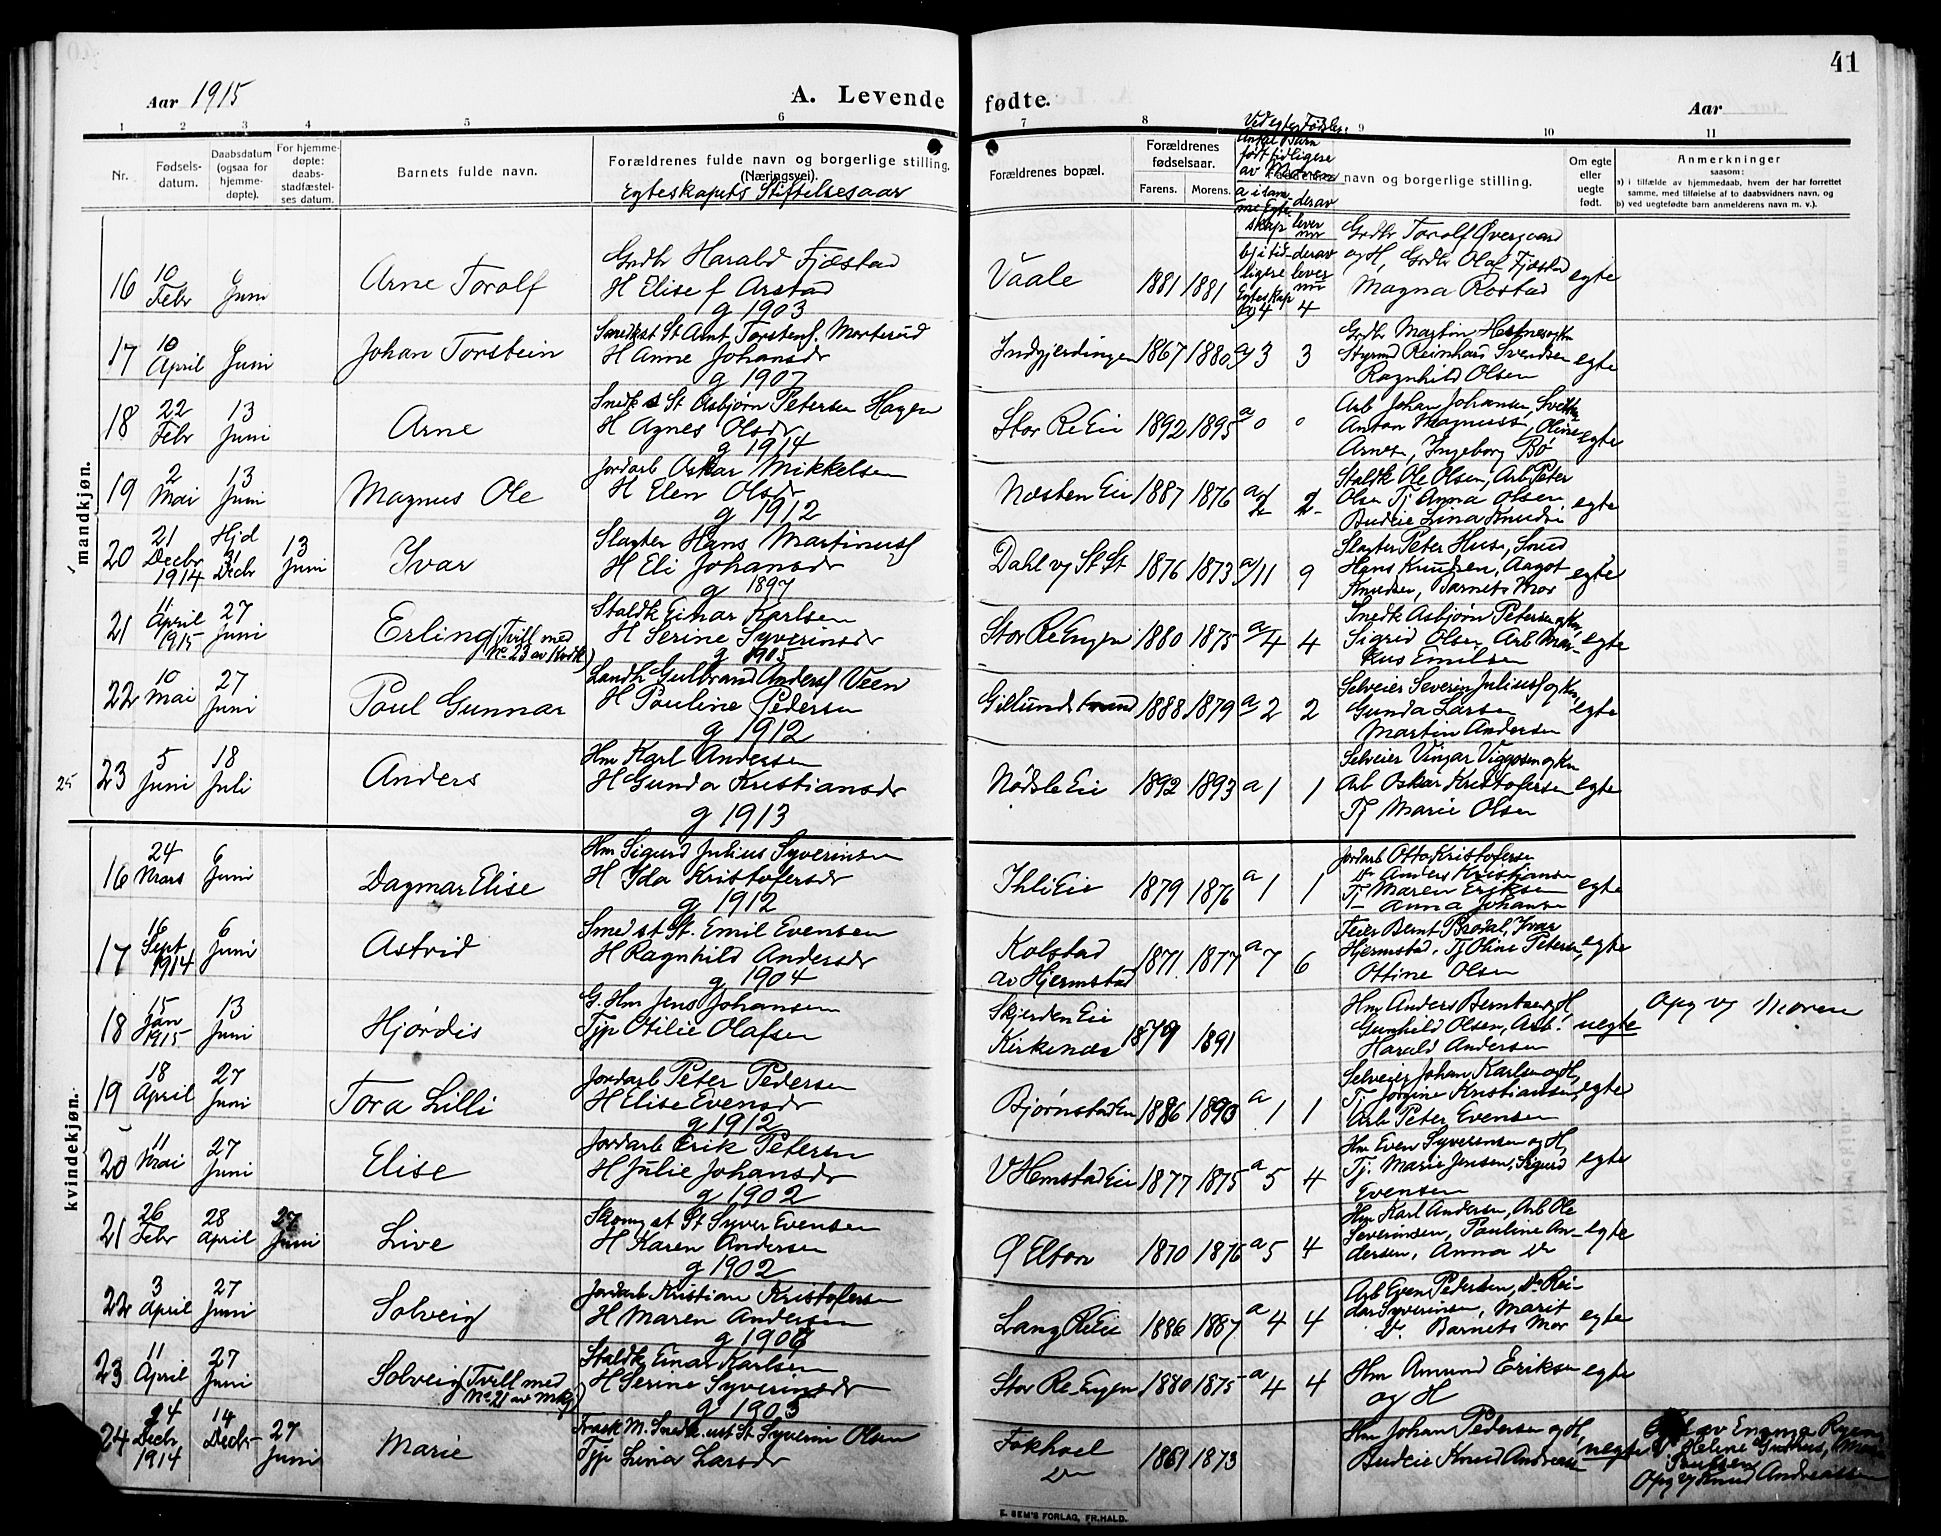 41
Aar 1915
A. Levende fødte.
Aar
1 2 3 4 5 6 7 8 9 10 11
Nr.
Fødselsdatum.
Daabsdatum (ogsaa for hjemmedøpte).
For hjemmedøpte: daabsstadfæstelses datum.
Barnets fulde navn.
Forældrenes fulde navn og borgerlige stilling,
(Næringsvei).
Egteskapets Stiftelsesaar
Forældrenes bopæl.
Forældrenes fødselsaar.
Farens. Morens.
Ved egte Fødsler:
Antal Barn
født tidligere
av Moderen
a i samme Egteskap
derav lever nu
b) i tidligere Egteskap
derav lever nu
navn og borgerlige stilling.
Om egte eller uegte født.
Anmerkninger
saasom:
a) i tilfælde av hjemmedaab, hvem der har forrettet samme, med tilføielse af to daabsvidners navn, og
b) ved uegtefødte barn anmelderens navn m. v.).
mandkjøn.
16 10 Febr 6 Juni Arne Torolf
Grdbr Harald Fjæstad
H Elise f Arstad
g 1903
Vaale 1881 1881 a) 4 4
Grdbr Torolf Øvergaard
og H, Grdbr Olaf Fjæstad
Magna Rostad
egte
17 10 April 6 Juni Johan Torstein
Smedk st St Amt Torstens. Morterud
H Anne Johansdr
g 1907
Indgjerdingen 1867 1880 a) 3 3
Grdbr Martin Hestnes og Kn
Styrmd Reinhard Svendsen
Ragnhild Olsen
egte
18 22 Febr 13 Juni Arne
Snedk st St Asbjørn Petersen Hagen
H Agnes Olsdr
g 1914
Stor Re Eie 1892 1895 a 0 0
Arb Johan Johansen,
Anton Magnuss, Oline
Arnesen, Ingeborg Bø
egte
19 2 Mai 13 Juni Magnus Ole
Jordarb Oskar Mikkelsen
H Elen Olsdr
g 1912
Næsten Eie 1887 1876 a) 2 2
Staldk Ole Olsen, Arb Peter
Olsen Tj Anna Olsen
Budeie Lina Knudsen
egte
20 21 Decbr 1914 Hjd 31 Decbr 13 Juni Ivar
Slagter Hans Martinuss
H Eli Johansdr
g 1897
Dahl v/ St St 1876 1873 a) 11 9
Slagter Peter Huse, Smed
Hans Knudsen, Aagot
Knudsen, Barnets Mor
egte
21 11 April 1915 27 Juni Erling (Tvill med
No 23 av Kvdk)
Staldk Einar Karlsen
H Serine Syverinsdr
g 1905
Stor Re Engen 1880 1875 a 4 4
Snedk Asbjørn Petersen og Kn,
Sigrid Olsen, Arb Mar-
kus Emilsen
egte
22 10 Mai 27 Juni Paul Gunnar
Landh Gulbrand Anderss Veen
H Pauline Pedersen
g 1912
Gillundstrand 1888 1879 a 2 2
Selveier Severin Juliuss og Kn,
Gunda Larsen
Martin Andersen
egte
25
23 5 Juni 18 Juli Anders
Hm Karl Andersen
H Gunda Kristiansdr
g 1913
Nødsle Eie 1892 1893 a 1 1
Selveier Vingar Viggosen og Kn
Arb Oskar Kristofersen
Tj Marie Olsen
egte
kvindekjøn.
16 24 Mars 6 Juni Dagmar Elise
Hm Sigurd Julius Syverinsen
H Ida Kristofersdr
g 1912
Ihli Eie 1879 1876 a 1 1
Jordarb Otto Kristofersen
Dr Anders Kristiansen
Tj Maren Eriksen
— Anna Johansen
egte
17 16 Sept 1914 6 Juni Astrid
Smed st St. Emil Evensen
H Ragnhild Andersdr
g 1904
Kolstad
av Hjermstad 1871 1877 a 7 6
Feier Bernt Brodal, Ivar
Hjermstad, Tj Oline Petersen,
Ottine Olsen
egte
18 15 Jan 1915 13 Juni Hjørdis
G. Hm Jens Johansen
Tjp Otilie Olafsen
Skjerden Eie
Kirkenær 1879 1891
Hm Anders Berntsen og H
Gunhild Olsen, Arb.
Harald Andersen
uegte
Opg v/ Moren
19 18 April 27 Juni Tora Lilli
Jordarb Peter Pedersen
H Elise Evensdr
g 1912
Bjørnstad Eie 1886 1890 a 1 1
Selveier Johan Karlsen og H,
Tj Jørgine Kristiansen,
Arb Peter Evensen
egte
20 11 Mai 27 Juni Elise
Jordarb Erik Petersen
H Julie Johansdr
g 1902
V Hemstad Eie 1877 1875 a 5 4
Hm Even Syverinsen og H,
Tj. Marie Jensen, Sigurd
Evensen
egte
21 26 Febr 28 April 27 Juni Live
Skomg st St Syver Evensen
H Karen Andersen
g 1902
Ø Elton 1870 1876 a 5 4
Hm Karl Andersen, Arb Ole
Severinsen, Pauline An-
dersen, Anna Dr
egte
22 3 April 27 Juni Solveig
Jordarb Kristian Kristofersen
H Maren Andersen
g 1906
Lang Re Eie 1886 1887 a 4 4
Arb Even Pedersen, Do Rei-
dar Syverinsen, Marit
Dr. Barnets Mor
egte
23 11 April 27 Juni Solveig (Tvill med
No 21 av Mkj)
Staldk Einar Karlsen
H Serine Syverinsdr
g 1905
Stor Re Engen 1880 1875 a 4 4
Hm Amund Eriksen
og H
egte
24 4 Decbr 1914 14 Decbr 27 Juni Marie
Frask M. Snedk ust St Syverin Olsen
Tjp Lina Larsdr
Fokhoel
Dr 1861 1873
Hm Johan Pedersen og H,
Budeie Knud Andreasen
uegte
av Emma Ryen
Helene
Opg v/ Knud Andreassen
E. SEM'S FORLAG, FR.HALD.